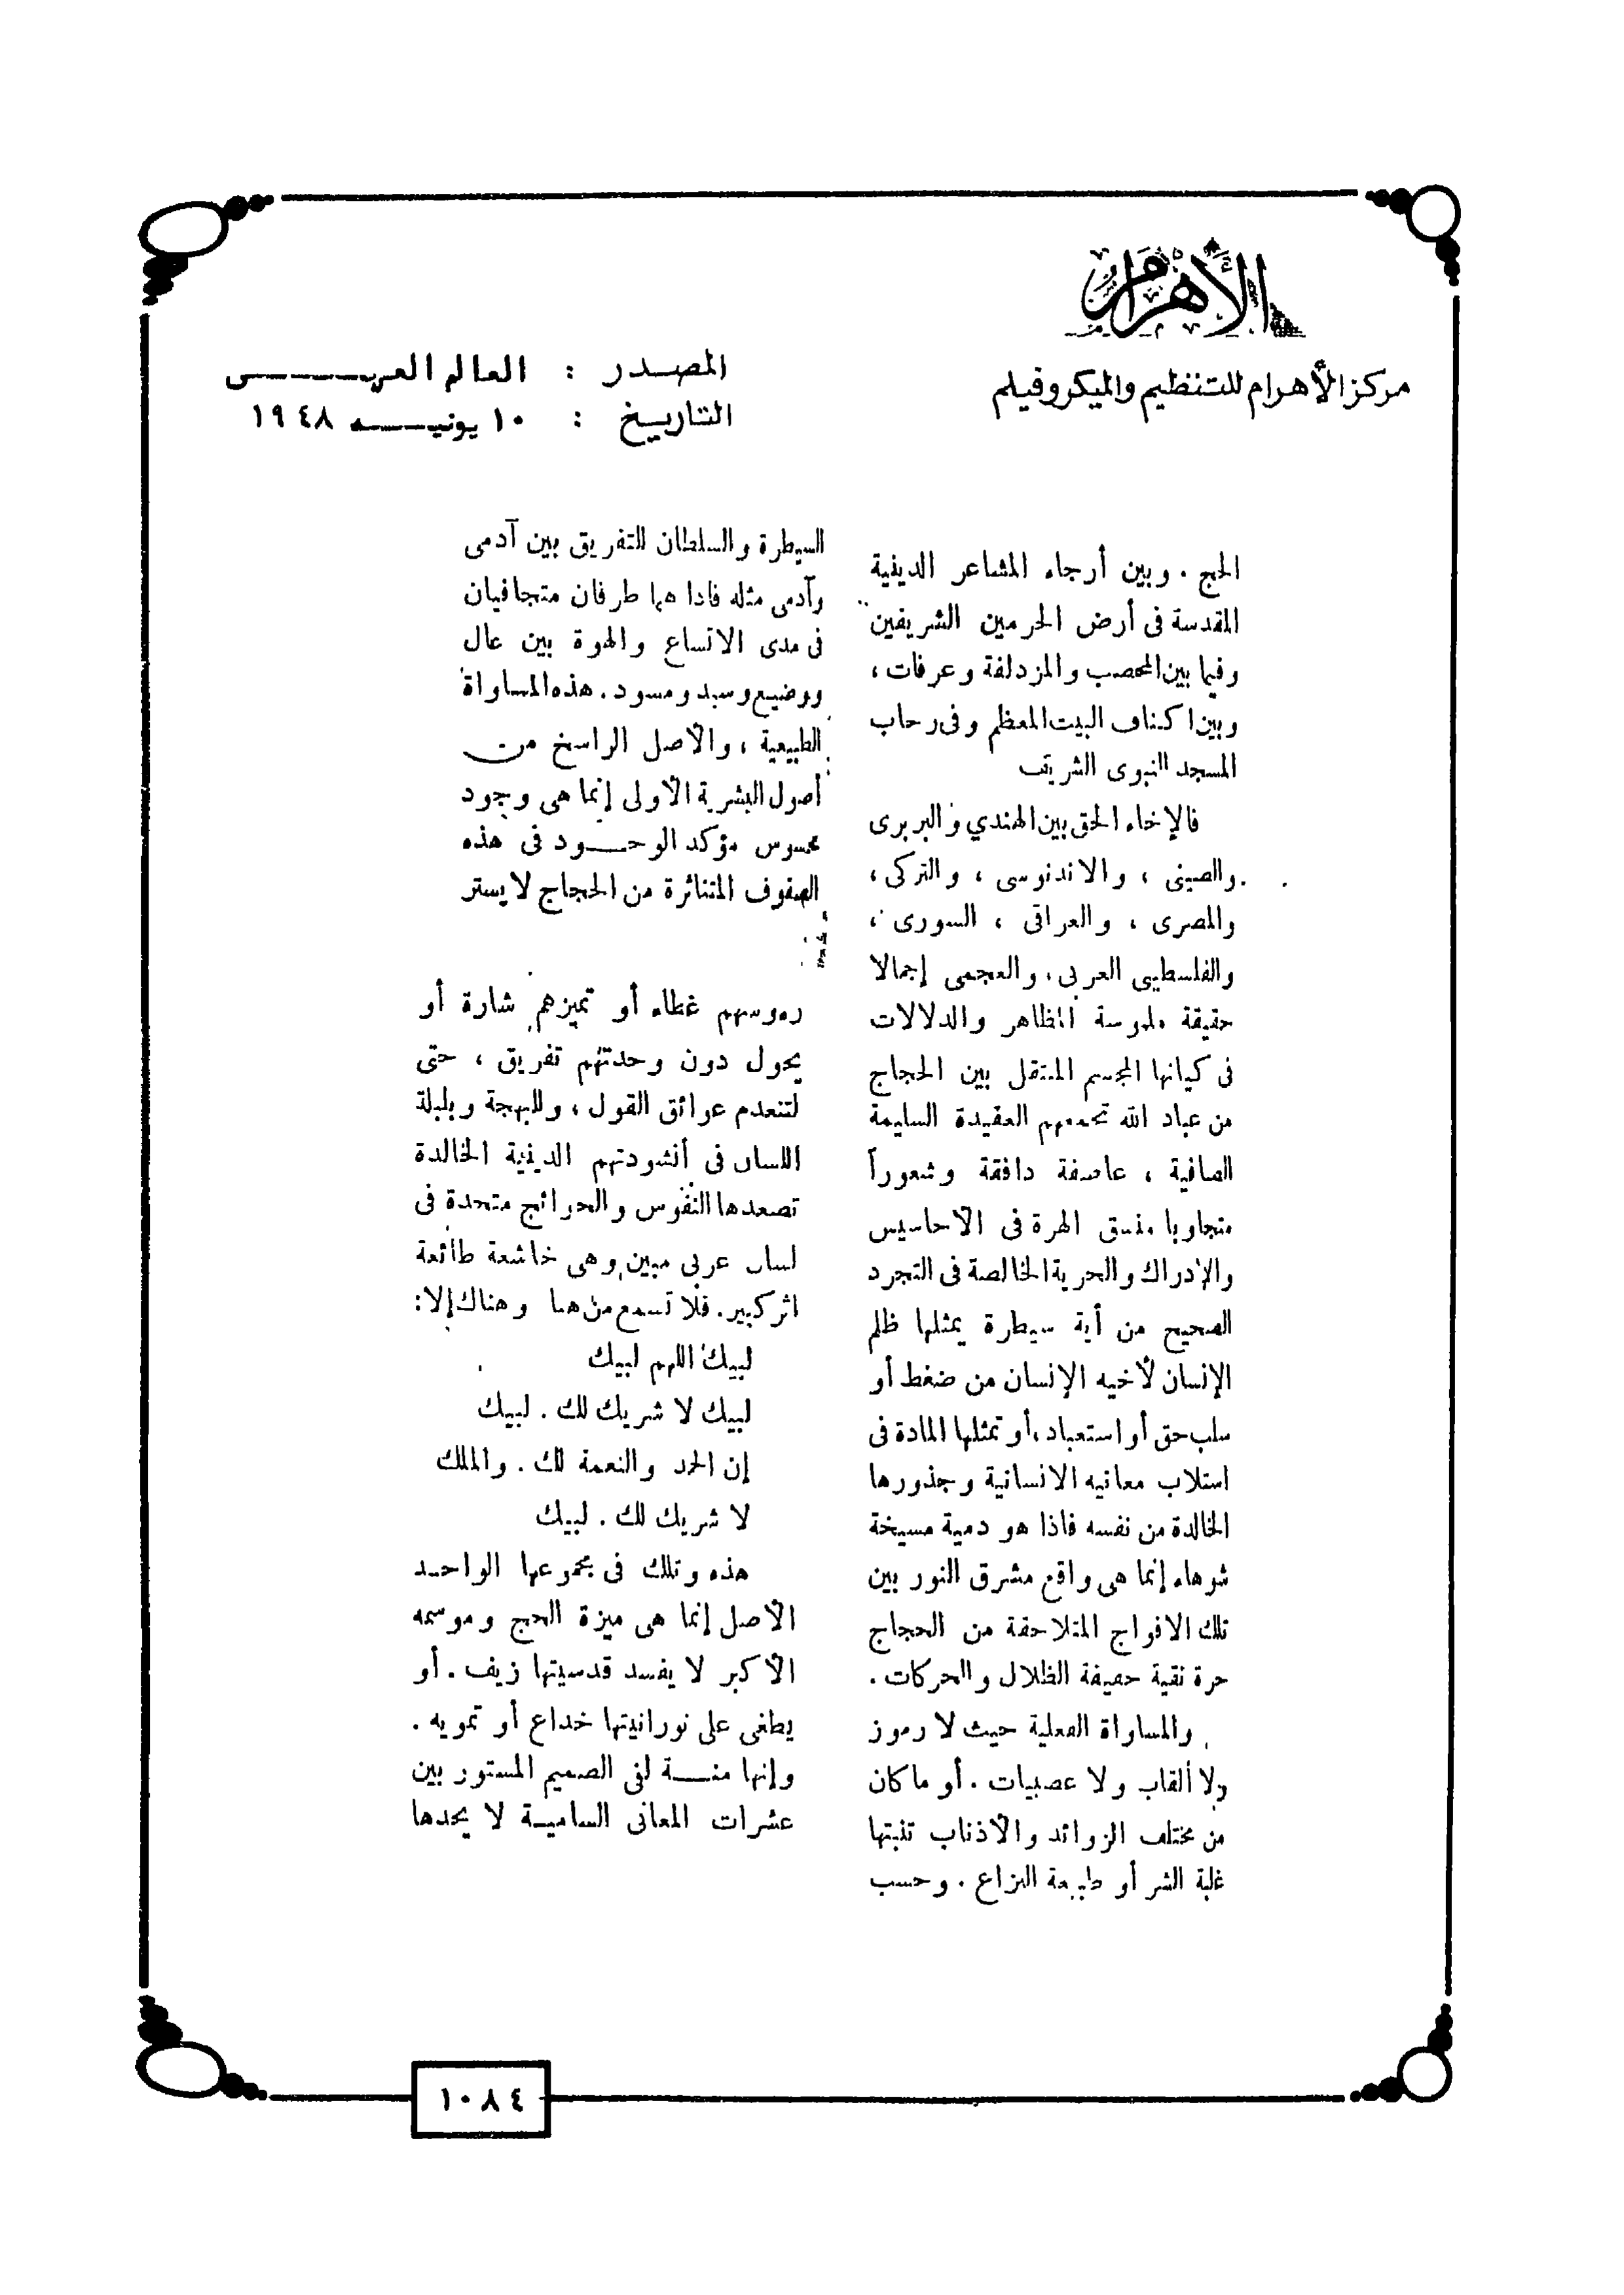 الأهرام
مركز الأهرام للتنظيم والميكروفيلم
المصدر : العالم العربى
التاريخ : ١٠ يونيه ١٩٤٨
الحج . وبين أرجاء المشاعر الدينية
المقدسة فى أرض الحرمين الشريفين
وفيما بين المحصب والمزدلفة وعرفات ،
وبين اكناف البيت المعظم وفى رحاب
المسجد النبوى الشريف
فالإخاء الحق بين الهندي والبربرى
والصينى ، والاندنوسى ، والتركى ،
والمصرى ، والعراقى ، السورى ،
والفلسطينى العربى ، والعجمى إجمالا
حقيقة ملموسة المظاهر والدلالات
فى كيانها المجسم المتنقل بين الحجاج
من عباد الله تجمعهم العقيدة السليمة
الصافية ، عاصفة دافقة وشعوراً
متجاوبا منسق الهرة فى الأحاسيس
والإدراك والحرية الخالصة فى التجرد
الصحيح من أية سيطرة يمثلها ظلم
الإنسان لأخيه الإنسان من ضغط أو
سلب حق أو استعباد ، أو تمثلها المادة فى
استلاب معانيه الانسانية وجذورها
الخالدة من نفسه فاذا هو دمية مسيخة
شوهاء إنما هى واقع مشرق النور بين
تلك الافواج المتلاحقة من الحجاج
حرة نقية حفيفة الظلال والحركات .
والمساواة الفعلية حيث لا رموز
ولا ألقاب ولا عصبيات . أو ما كان
من مختلف الزوائد والأذناب تنبتها
غلبة الشر أو طبيعة النزاع . وحسب
السيطرة والسلطان للتفريق بين آدمى
وآدمى مثله فاذا هما طرفان متجافيان
فى مدى الاتساع والهوة بين عال
ووضيع وسيد ومسود . هذه المساواة
الطبيعية ، والأصل الراسخ من
أصول البشرية الأولى إنما هى وجود
محسوس مؤكد الوجود فى هذه
الصفوف المتناثرة من الحجاج لا يستر
رءوسهم غطاء أو تميزهم شارة أو
يحول دون وحدتهم تفريق ، حتى
لتنعدم عوائق القول ، وللبهجة وبلبلة
اللسان فى أنشودتهم الدينية الخالدة
تصعدها النفوس والحوائج متحدة فى
لسان عربى مبين وهى خاشعة طائعة
اثر كبير . فلا تسمع من هنا وهناك إلا :
لبيك اللهم لبيك
لبيك لا شريك لك . لبيك
إن الحمد والنعمة لك . والملك
لا شريك لك . لبيك
هذه وتلك فى مجموعها الواحد
الأصل إنما هى ميزة الحج وموسمه
الأكبر لا يفسد قدسيتها زيف . أو
يطغى على نورانيتها خداع أو تمويه .
وإنها منة لفى الصميم المستور بين
عشرات المعانى السامية لا يحدها
١٠٨٤